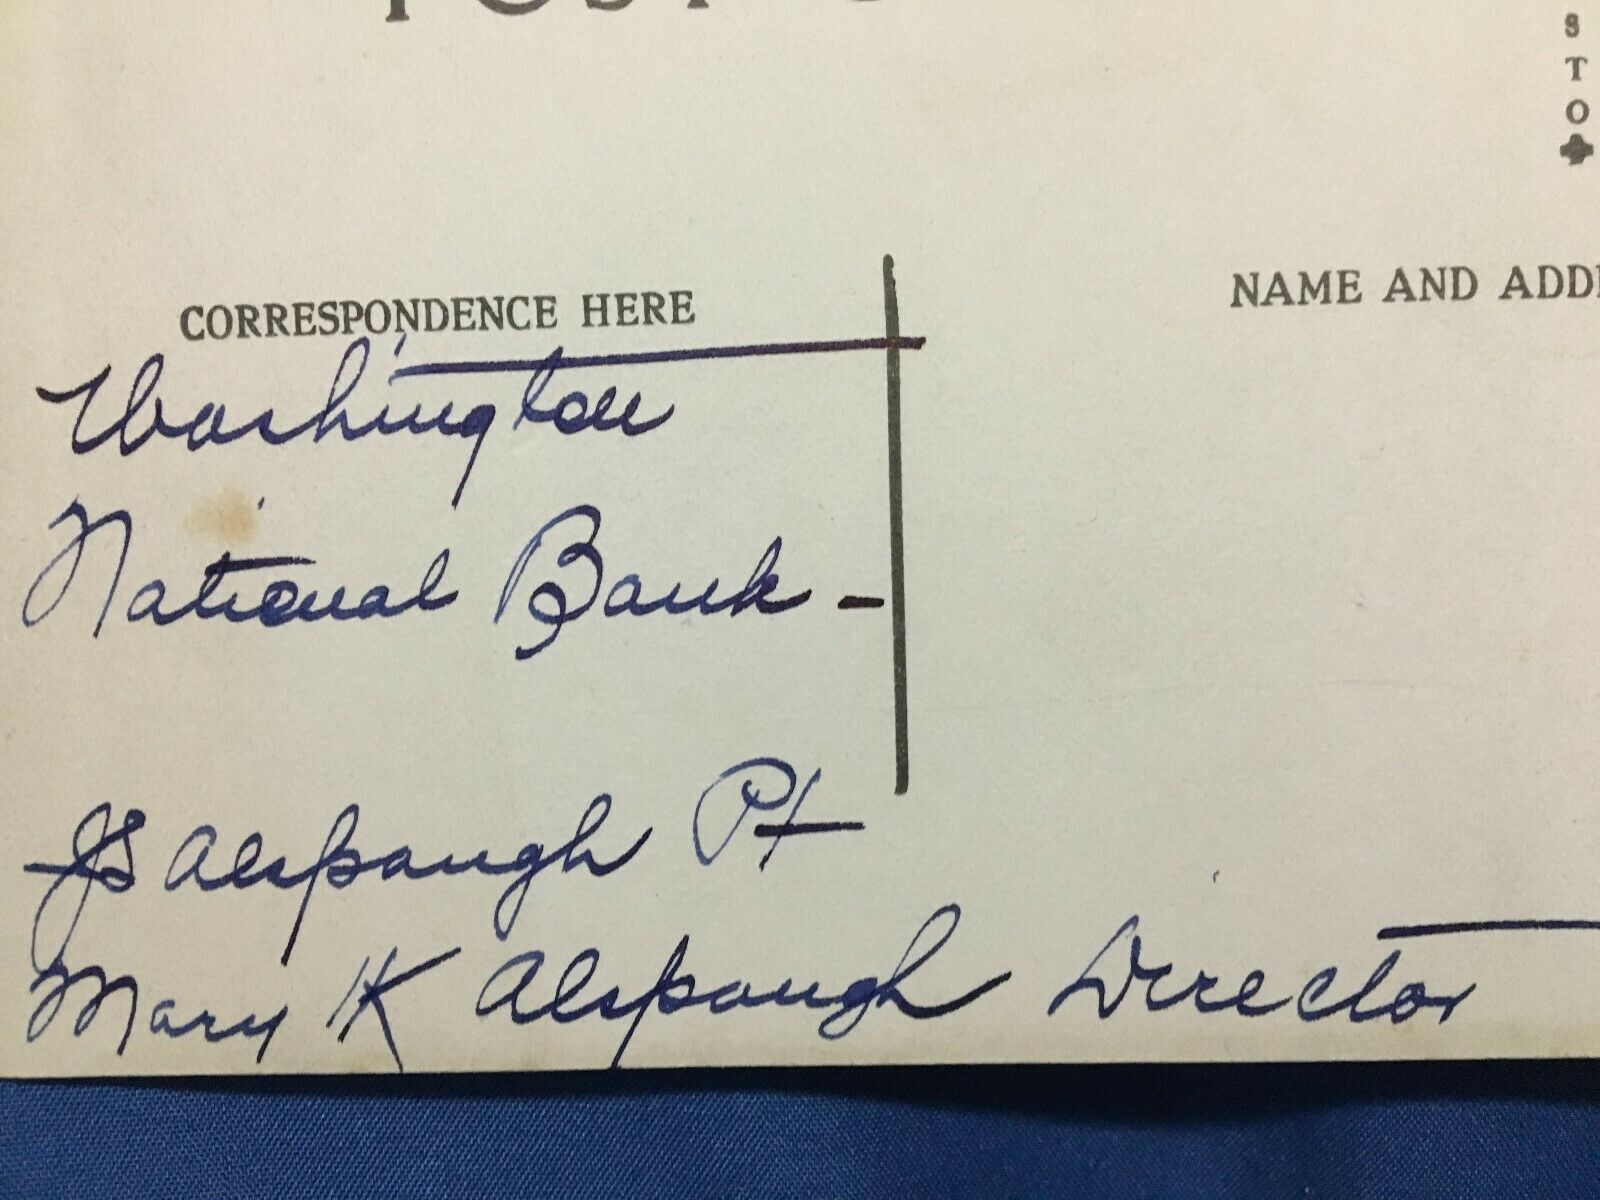 POST
S
T
O
CORRESPONDENCE HERE
NAME AND ADD
Washington
National Bank -
JS Alspaugh Pt
Mary K Alspaugh Director